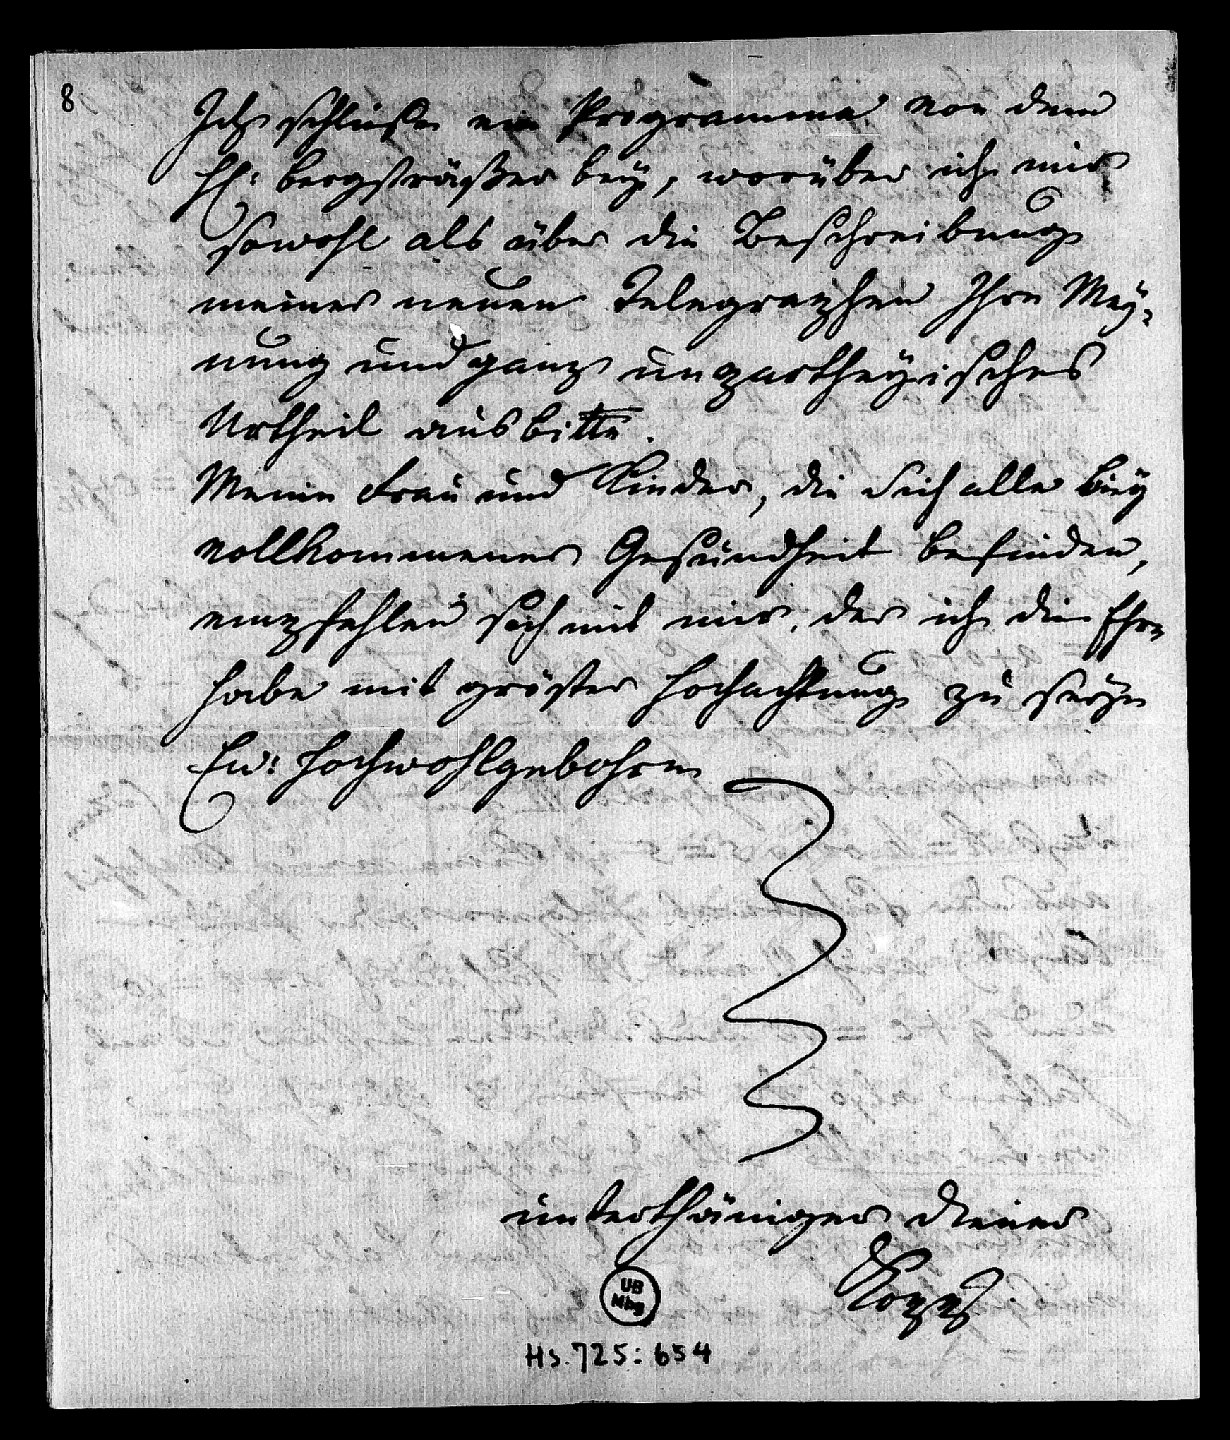 8
Ich schließe ein Programma von dem
H: Bergsträßer bey, worüber ich mir
sowohl als über die Beschreibung
meines neuen Telegraphen Ihre Mey-
nung und ganz unpartheyisches
Urtheil ausbitte.
Meine Frau und Kinder, die sich alle bey
vollkommener Gesundheit befinden,
empfehlen sich mit mir, der ich die Ehre
habe mit gröster Hochachtung zu seyn
Ew: Hochwohlgebohren
unterthäniger Diener
Kopp
UB
Mbg
Hs. 725: 654